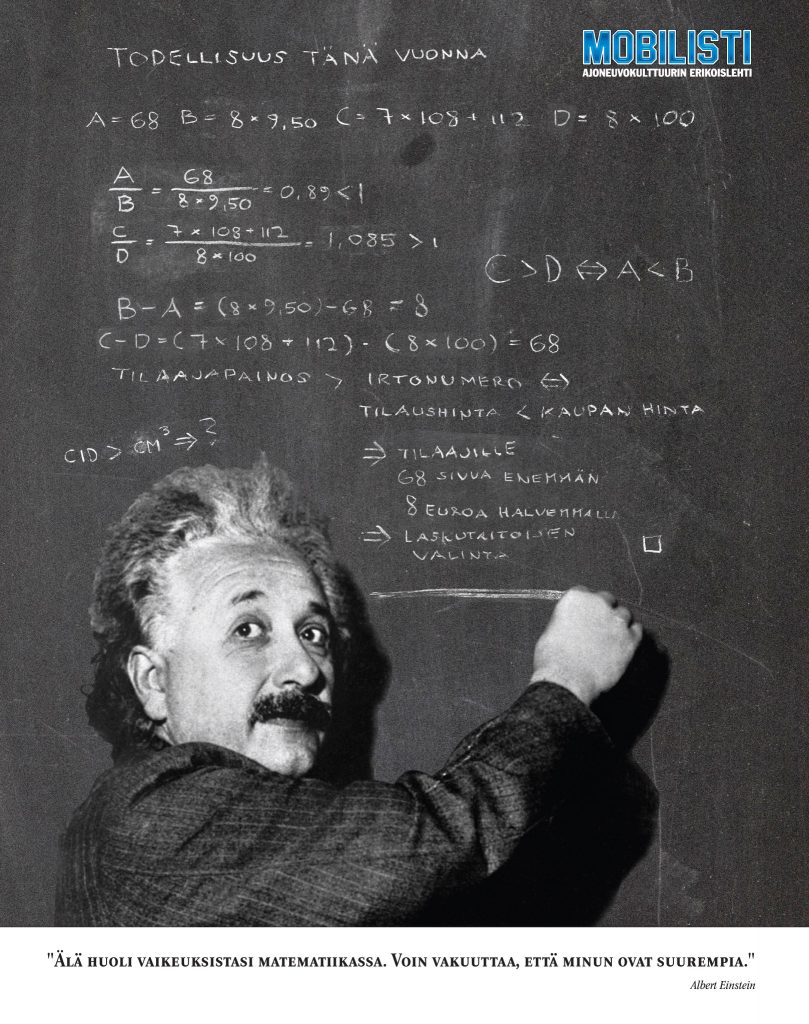 MOBILISTI
AJONEUVOKULTTUURIN ERIKOISLEHTI
TODELLISUUS TÄNÄ VUONNA
A = 68 B = 8 × 9,50 C = 7 × 108 + 112 D = 8 × 100
A/B = 68/(8 × 9,50) = 0,89 < 1
C/D = (7 × 108 + 112)/(8 × 100) = 1,085 > 1
C > D ⇔ A < B
B − A = (8 × 9,50) − 68 = 8
C − D = (7 × 108 + 112) - (8 × 100) = 68
TILAAJAPAINOS > IRTONUMERO ⇔
TILAUSHINTA < KAUPAN HINTA
CID > CM³ ⇒ ?
⇒ TILAAJILLE
68 SIVUA ENEMMÄN
8 EUROA HALVEMMALLA
⇒ LASKUTAITOISEN
VALINTA
"ÄLÄ HUOLI VAIKEUKSISTASI MATEMATIIKASSA. VOIN VAKUUTTAA, ETTÄ MINUN OVAT SUUREMPIA."
Albert Einstein